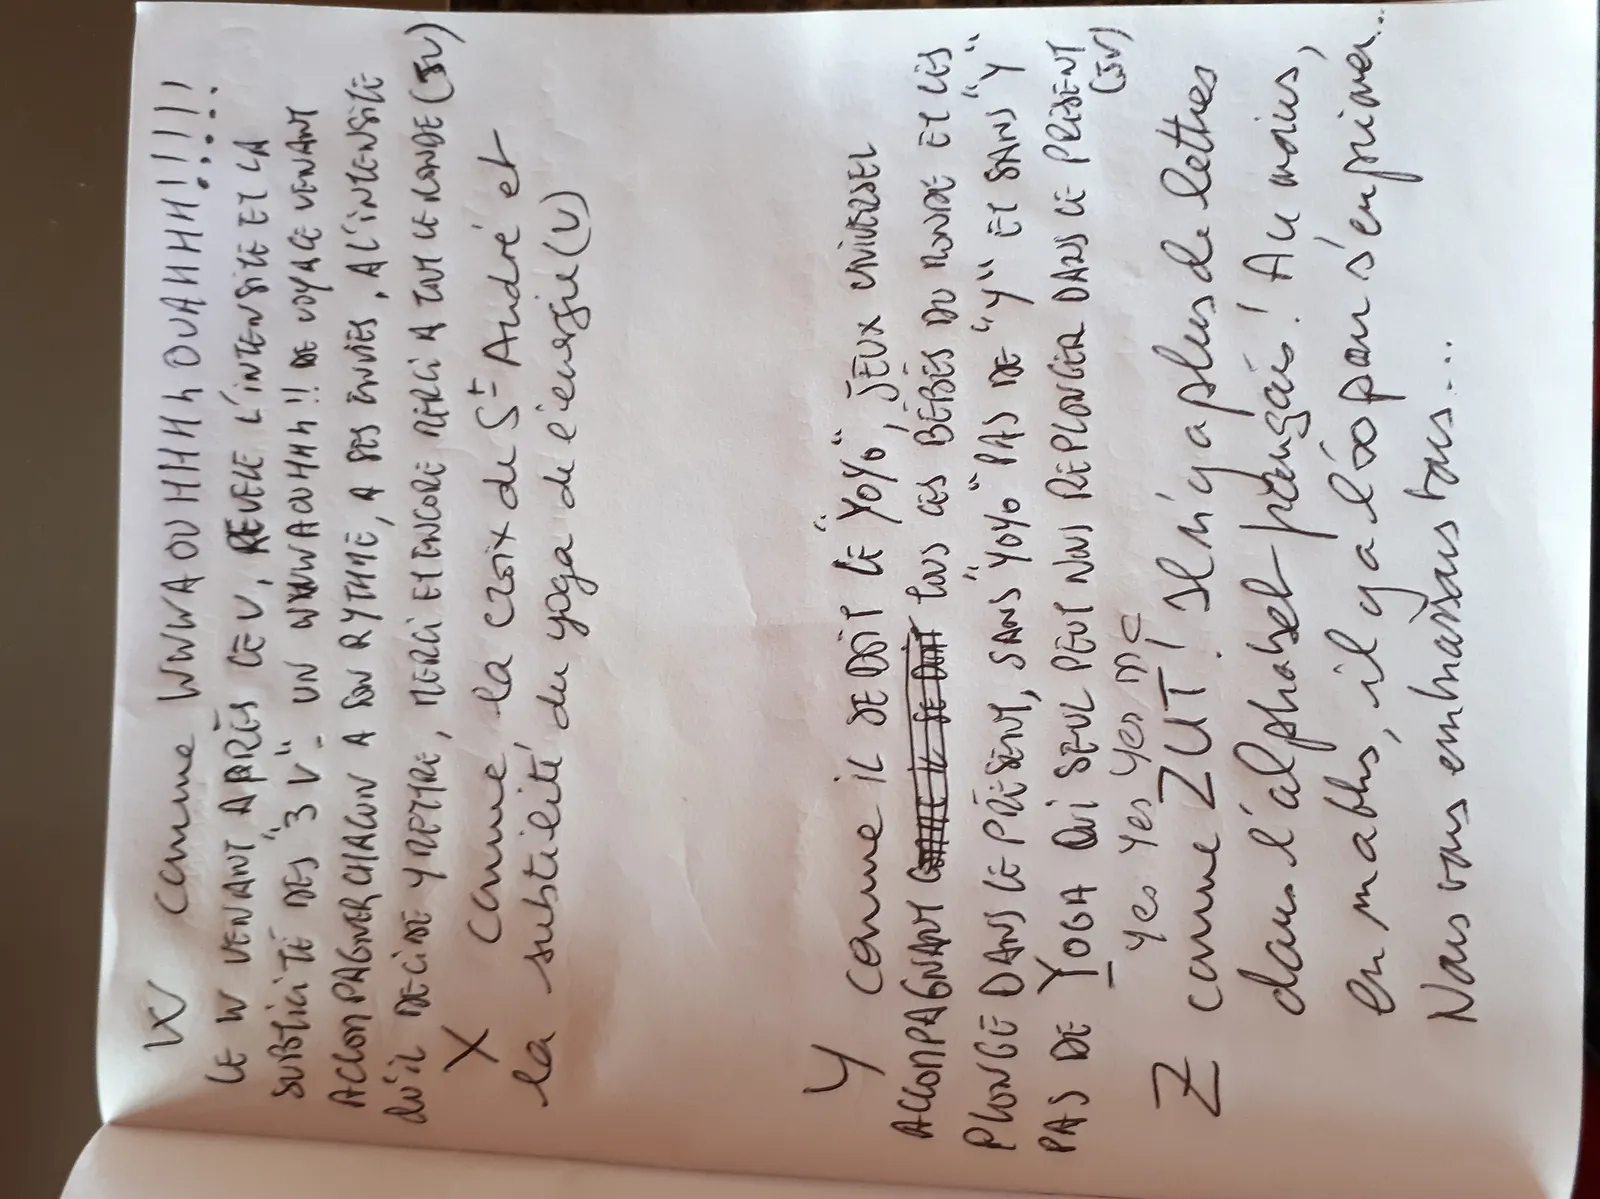 W comme WWWAOUHHHhOUAHHH!!!!!
LE W VENANT APRÈS LE V, REVELE L'INTENSITE ET LA
SUBTILITÉ DES "3 V". UN WWWAOUHHh!! DE VOYAGE VENANT
ACCOMPAGNER CHACUN A SON RYTHME, A SES ENVIES, A L'INTENSITÉ
QU'IL DECIDE Y METTRE, MERCI ET ENCORE MERCI A TOUT LE MONDE (JV)
X comme la croix de St André et
la subtilité du yoga de l'énergie (V)
Y comme IL SE DOIT LE "YOYO", JEUX UNIVERSEL
ACCOMPAGNANT COMME IL SE DOIT TOUS LES BÉBÉS DU MONDE ET LES
PLONGE DANS LE PRÉSENT, SANS "YOYO" PAS DE "Y" ET SANS "Y"
PAS DE YOGA QUI SEUL PEUT NOUS REPLONGER DANS LE PRÉSENT
(JV)
Yes Yes Yes
Z comme ZUT! Il n'y a plus de lettres
dans l'alphabet français! Au moins,
en maths, il y a l'∞ pour s'exprimer...
Nous vous embrassons tous...